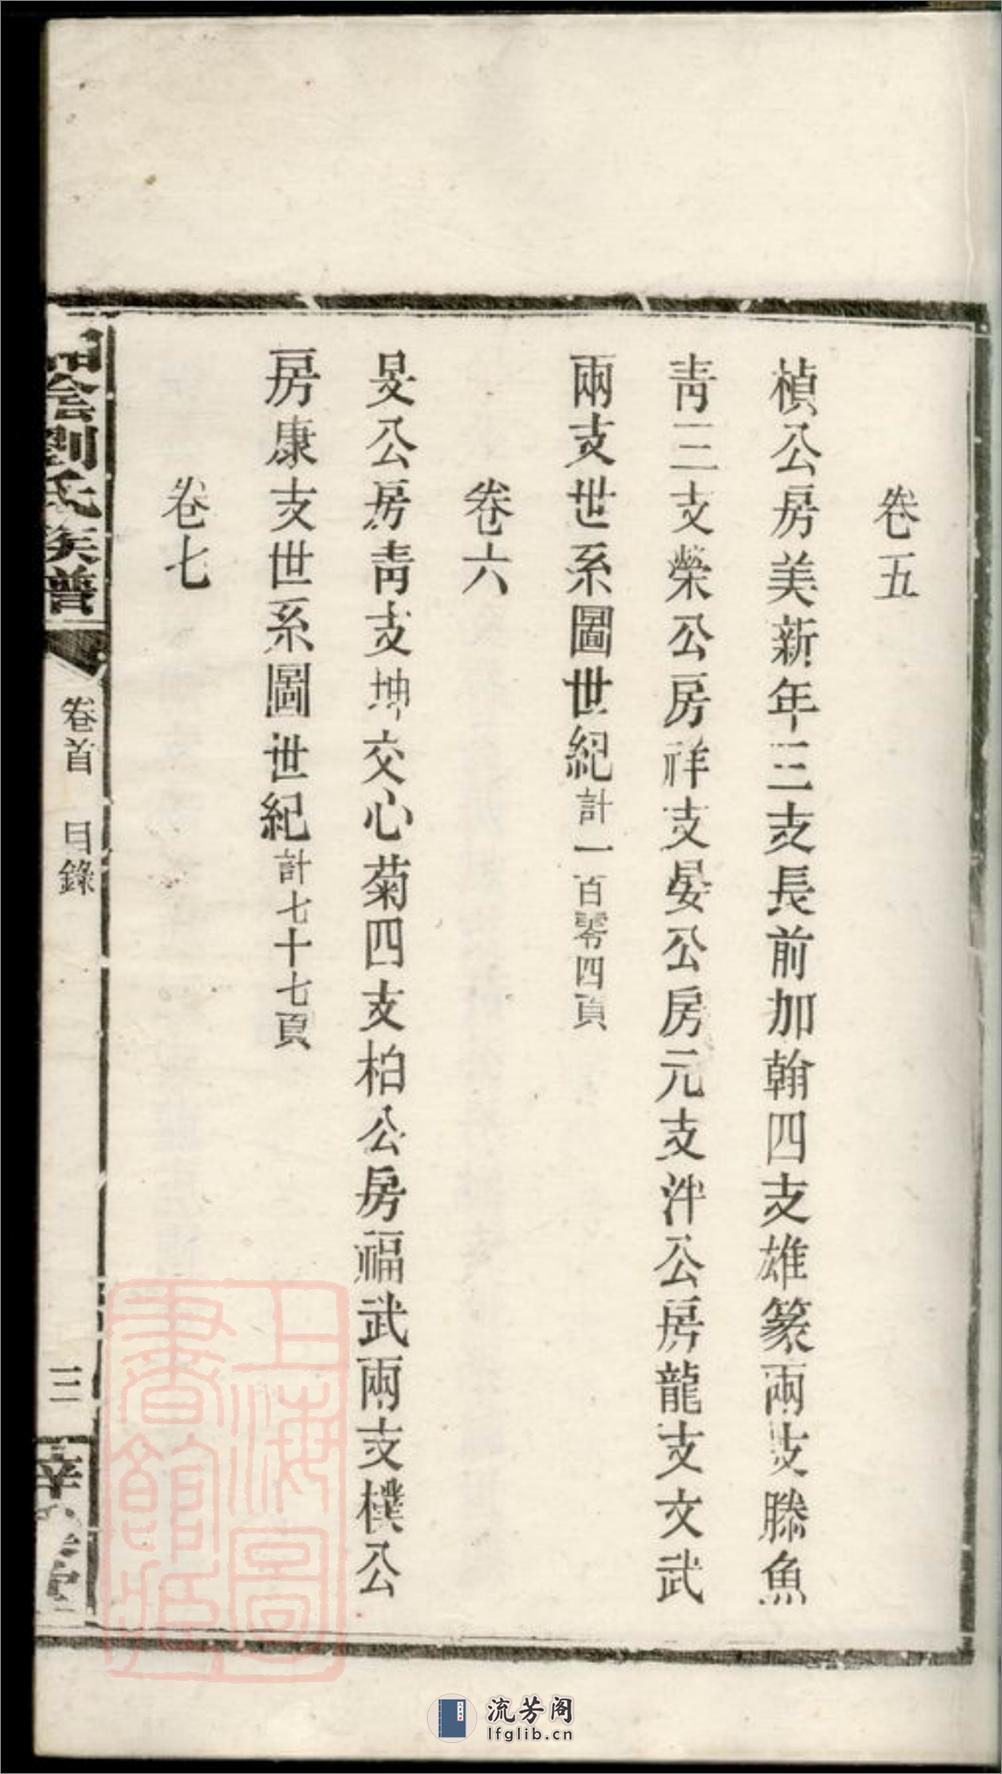 卷五
楨公房美新年三支長前加翰四支雄篆兩支滕魚
青三支榮公房祥支晏公房元支泮公房龍支文武
兩支世系圖世紀計一百零四頁
卷六
旻公房青支坤交心菊四支柏公房福武兩支樸公
房康支世系圖世紀計七十七頁
卷七
劉氏族譜
卷首 目錄
三
上海圖書館藏
流芳阁
lfglib.cn